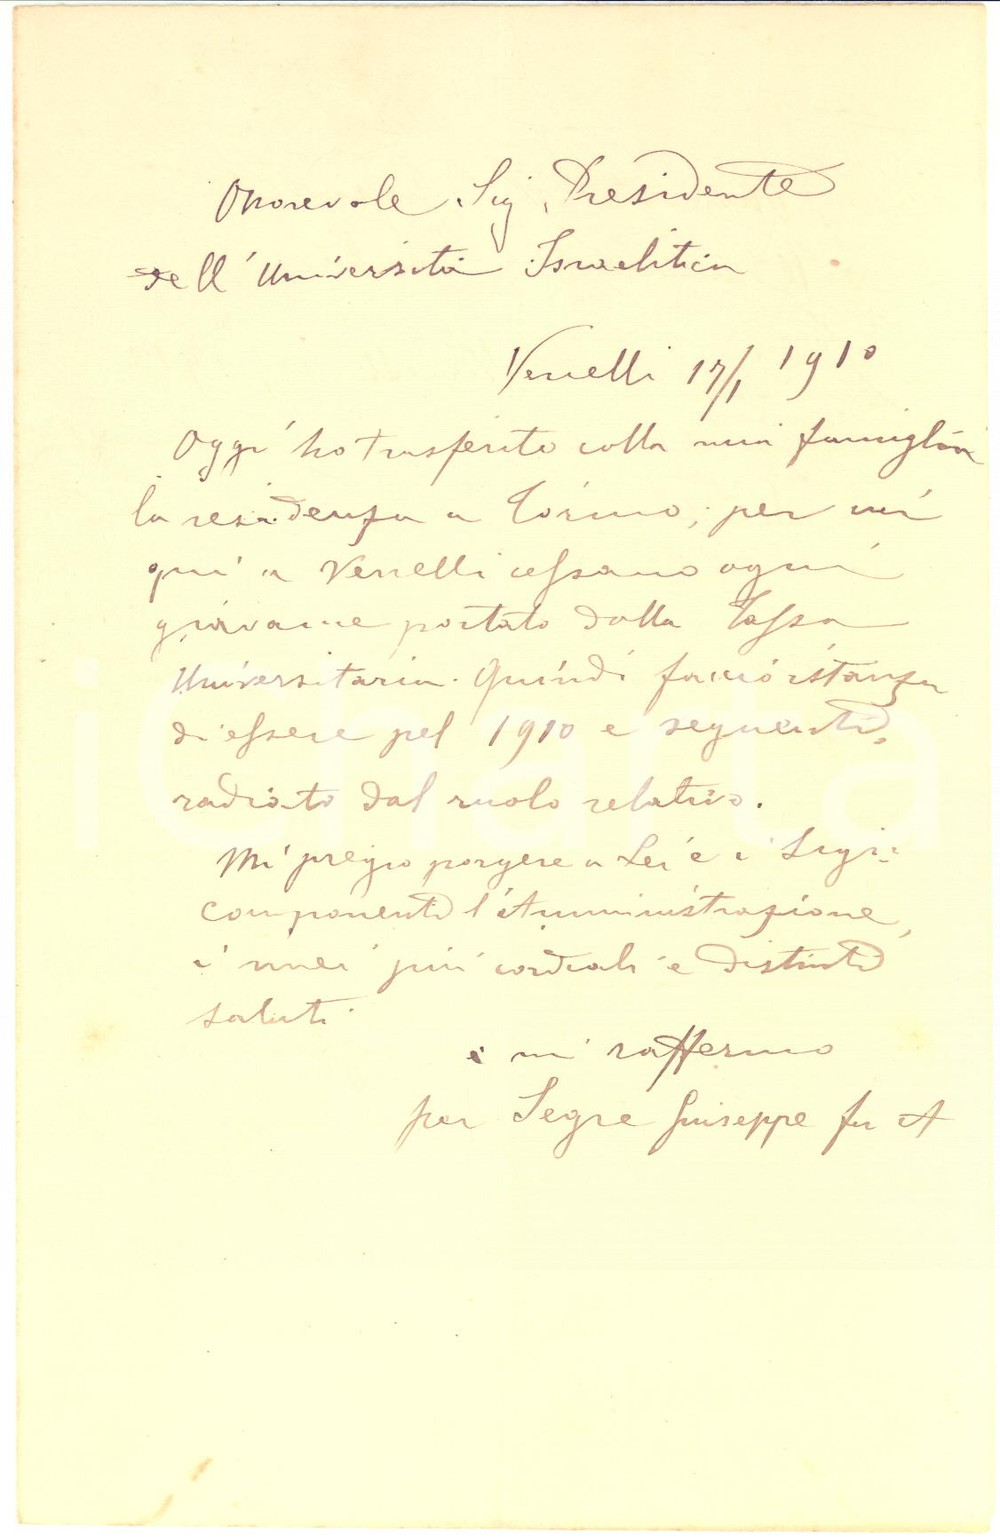 Onorevole Sig. Presidente
dell'Università Israelitica
Vercelli 17/1 1910
Oggi ho trasferito colla mia famiglia
la residenza a Torino; per cui
qui a Vercelli cessano ogni
gravame portato dalla Tassa
Universitaria. Quindi faccio istanza
di essere pel 1910 e seguenti,
radiato dal ruolo relativo.
Mi pregio porgere a Lei e i Sigri
componenti l'Amministrazione,
i miei più cordiali e distinti
saluti
e mi raffermo
per Segre Giuseppe fu A
iCharta